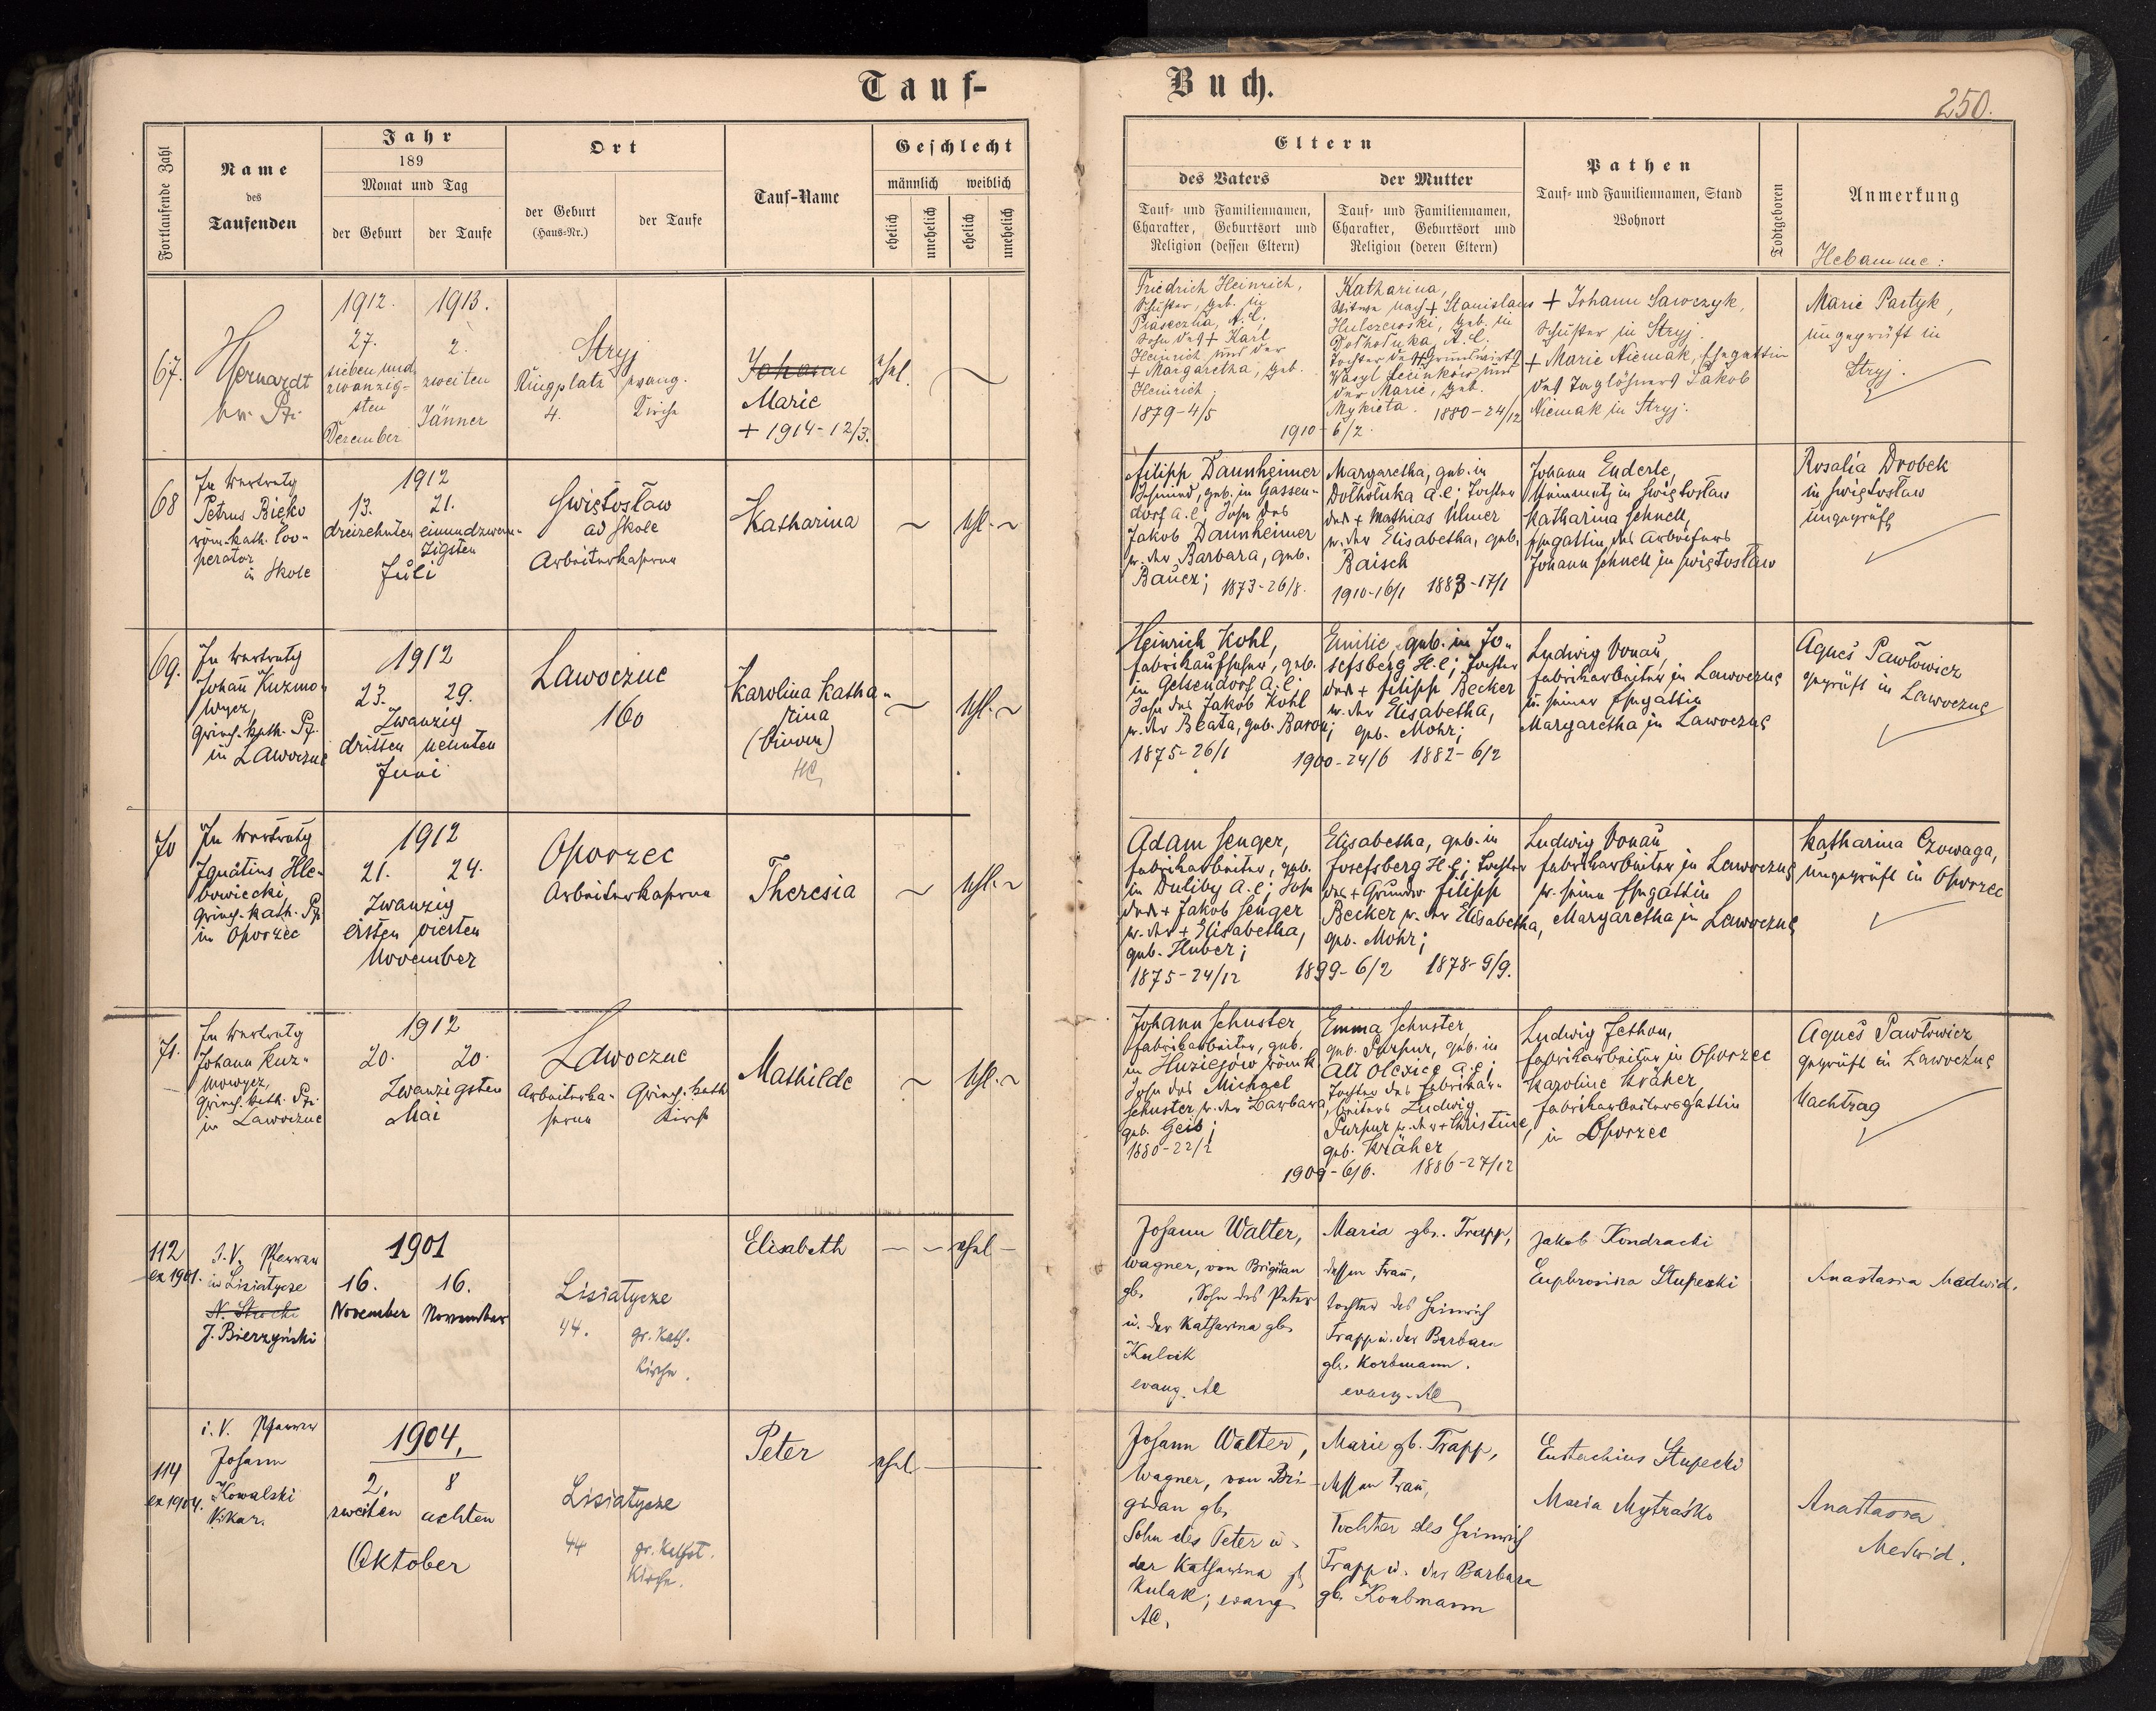 Tauf-
Buch.
250.
Fortlaufende Zahl
Name
des
Taufenden
Jahr
189
Monat und Tag
der Geburt
der Taufe
Ort
der Geburt
(Haus-Nr.)
der Taufe
Tauf-Name
Geschlecht
männlich
weiblich
ehelich
unehelich
ehelich
unehelich
Eltern
des Vaters
Tauf- und Familiennamen,
Charakter, Geburtsort und
Religion (dessen Eltern)
der Mutter
Tauf- und Familiennamen,
Charakter, Geburtsort und
Religion (deren Eltern)
Pathen
Tauf- und Familiennamen, Stand
Wohnort
Todtgeboren
Anmerkung
Hebamme:
67.
1912. 1913.
27. 2.
sieben und
zwanzig- zweiten
sten
Dezember Jänner
Stryj
Ringplatz evang.
4. Kirche
Johann
Marie
+ 1914-12/3.
ehel.
Friedrich Heinrich,
Schuster, geb. in
Piaseczna, A.C.
Sohn des + Karl
Heinrich und der
+ Margaretha, geb.
Heinrich
1879-4/5
Katharina,
Witwe nach + Stanislaus
geb. in
A.C.
Tochter des + Grundwirts
Wasyl und
der Marie, geb.
Mykieta. 1880-24/12
1910-6/2.
+ Johann Sawczyk,
Schuster in Stryj
+ Marie Niemak, Ehegattin
des Taglöhners Jakob
Niemak in Stryj.
Marie Partyk,
ungeprüft in
Stryj.
68
In Vertretg
Petrus
röm.-kath. Coo-
perator
in Skole
1912
13. 21.
dreizehnten einundzwan-
zigsten
Juli
Swiętosław
ad Skole
Arbeiterkaserne
Katharina
ehl.
Filipp Daunheimer
Schmied, geb. in Gassen-
dorf A.C; Sohn des
Jakob Daunheimer
u. der Barbara, geb.
Bauer; 1873-26/8.
Margaretha, geb. in
Dołhołuka A.C; Tochter
des + Mathias Ulmer
u. der Elisabetha, geb.
Baisch
1910-16/1 1883-17/1
Johann Enderle,
in Swiętosław
Katharina Schnell,
Ehegattin des Arbeiters
Johann Schnell in Swiętosław
Rosalia Drobek
in Swiętosław
ungeprüft
69.
In Vertretg
Johann Kuzmo-
wycz,
griech.-kath. Pf.
in Lawoczne
1912
23. 29.
Zwanzig
dritten neunten
Juni
Lawoczne
160
Karolina Katha-
rina
HC
ehl.
Heinrich Kohl,
Fabrikaufseher, geb.
in Gelsendorf A.C;
Sohn des Jakob Kohl
u. der Beata, geb. Baron;
1875-26/1
Emilie, geb. in Jo-
sefsberg H.C; Tochter
des + Filipp Becker
u. der Elisabetha,
geb. Mohr;
1900-24/6 1882-6/2
Ludwig Donau,
Fabrikarbeiter in Lawoczne
u. seiner Ehegattin
Margaretha in Lawoczne
Agnes Pawłowicz
geprüft in Lawoczne
70
In Vertretg
Ignatius Hle-
bowiecki
griech.-kath. Pf.
in Oporzec
1912
21. 24.
Zwanzig
ersten vierten
November
Oporzec
Arbeiterkaserne
Theresia
ehl.
Adam Senger,
Fabrikarbeiter, geb.
in Duliby A.C; Sohn
des + Jakob Senger
u. der + Elisabetha,
geb. Huber;
1875-24/12
Elisabetha, geb. in
Josefsberg H.C; Tochter
des + Grundw Filipp
Becker u. der Elisabetha,
geb. Mohr;
1899-6/2 1878-9/9.
Ludwig Donau
Fabrikarbeiter in Lawoczne
u. seine Ehegattin
Margaretha in Lawoczne
Katharina Czowaga,
ungeprüft in Oporzec
71.
In Vertretg
Johann Kuz-
mowycz,
griech. kath. Pf.
in Lawoczne
1912
20. 20.
Zwanzigsten
Mai
Lawoczne
Arbeiterka- Griech. kath
serne Kirche
Mathilde
ehl.
Johann Schuster,
Fabrikarbeiter, geb.
in Huziejów röm. k
Sohn des Michael
Schuster u. der Barbara
geb. Geib;
1880-22/2
Emma Schuster,
geb. Purpur, geb. in
Alt Olexice A.C;
Tochter des Fabrikar-
beiters Ludwig
Purpur u. der + Christine,
geb. Kräher
1909-6/6. 1886-27/12
Ludwig Jethon,
Fabrikarbeiter in Oporzec
Karoline Kräher,
Fabrikarbeitersgattin
in Oporzec
Agnes Pawłowicz,
geprüft in Lawoczne
Nachtrag
112
ex 1901.
I.V. Pfarrer
in Lisiatycze
J. Bierzyński
1901
16. 16.
November November
Lisiatycze
44. gr. kath.
Kirche.
Elisabeth
ehel
Johann Walter,
Wagner, von Brigidau
gb. , Sohn des Peter
u. der Katharina gb.
Kulak
evang. AC
Maria gb. Trapp,
dessen Frau,
Tochter des Heinrich
Trapp u. der Barbara
gb. Korbmann.
evang. AC
Jakob Kondracki
Euphrosina Stupecki
Anastasia Medwid.
114
ex 1904.
i. V. Pfarrer
Johann
Kowalski
Vikar.
1904.
2. 8
zweiten achten
Oktober
Lisiatycze
44 gr. kathol.
Kirche.
Peter
ehel
Johann Walter,
Wagner, von Bri-
gidau gb.
Sohn des Peter u.
der Katharina gb.
Kulak; evang.
AC.
Marie gb. Trapp,
dessen Frau,
Tochter des Heinrich
Trapp u. der Barbara
gb. Korbmann
Eustachius Stupecki
Maria Mytraśko
Anastasia
Medwid.